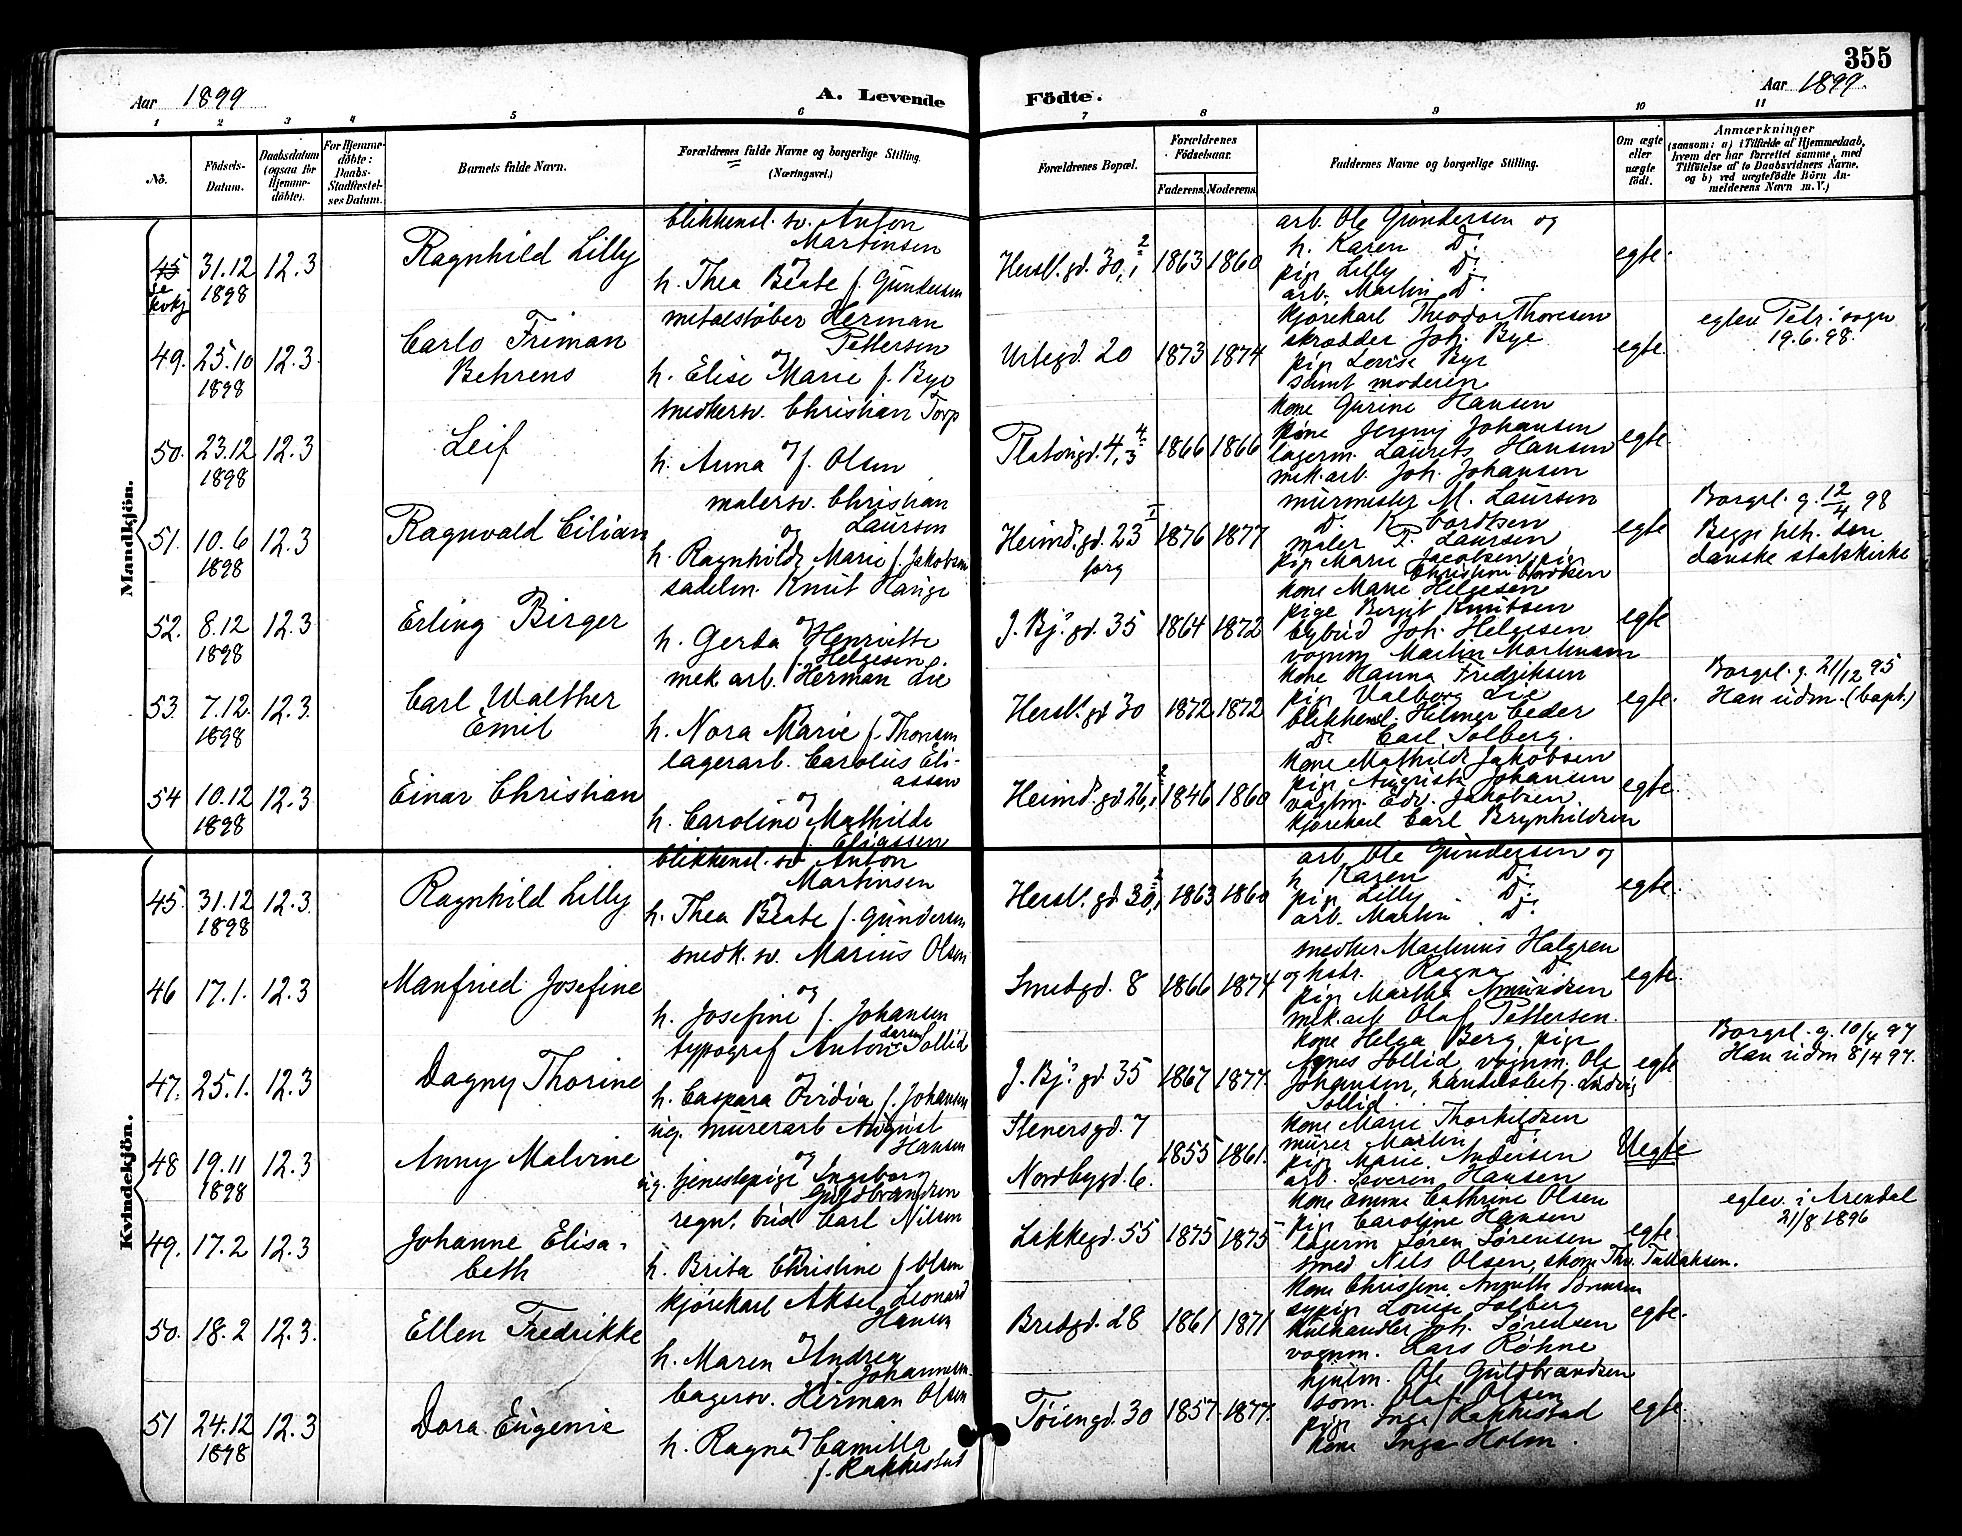 355
Aar 1899
A. Levende Födte.
Aar 1899.
1 2 3 4 5 6 7 8 9 10 11
No.
Födsels-Datum.
Daabsdatum (ogsaa for Hjemmedöbte).
For Hjemmedöbte: Daabs-Stadfæstelses Datum.
Barnets fulde Navn.
Forældrenes fulde Navne og borgerlige Stilling.
(Næringsvei.)
Forældrenes Bopæl.
Forældrenes Födselsaar.
Faderens. Moderens.
Faddernes Navne og borgerlige Stilling.
Om ægte eller uægte födt.
Anmærkninger
(saasom: a) i Tilfælde af Hjemmedaab, hvem der har forrettet samme, med Tilföielse af to Daabsvidners Navne, og b) ved uægtefödte Börn Anmelderens Navn m. V.)
Mandkjön.
45 se kvkj
31.12 1898
12.3
Ragnhild Lilly
blikkensl. sv. Anton Martinsen
og
h. Thea Beate f. Gundersen
Hersl. gd. 30, 2/1
1863 1860
arb. Ole Gundersen og
h. Karen D:
pige Lilly D:
arb. Martin D:
egte.
49. 25.10 1898
12.3
Carlo Friman Behrens
metalstøber Herman Pettersen
og
h. Elise Marie f. Bye
Urtegd. 20
1873 1874
kjørekarl Theodor Thoresen
skrædder Joh. Bye
pige Lovise Bye
samt moderen
egte
egtev. Petr. sogn
19.6.98.
50. 23.12 1898
12.3
Leif
snedkersv. Christian Torp
og
h. Anna f. Olsen
Platougd. 4, 4/3
1866 1866
kone Gurine Hansen
kone Jenny Johansen
lagerm. Laurits Hansen
mek. arb. Joh. Johansen
egte.
51. 10.6 1898
12.3
Ragnvald Cilian
malersv. Christian Laursen
og
h. Ragnhild Marie f. Jakobsen
Heimd. gd. 23 I
1876 1877
murmester M. Laursen
D: K. Cordtsen
maler P. Laursen
pige Marie Jacobsen, pige
Christine Cordtsen
egte
Borgerl. g. 12/4 98
Begge tilh. den
danske statskirke
52. 8.12 1898
12.3
Erling Birger
sadelm. Knut Hauge
og
h. Gerda Henriette
f. Helgesen.
J. Bj. gd. 35
1864 1872
kone Marie Helgesen
pige Bergit Knutsen
bybud Joh. Helgesen
vognm. Martin Martinsen
egte
53. 7.12. 1898
12.3
Carl Walther Emil
mek arb. Herman Lie
og
h. Nora Marie f. Thoresen
Hersl. gd 30
1872 1872
kone Hanna Fredriksen
pige Valborg Lie
blikkensl. Hilmer Ceder
D: Carl Solberg.
egte.
Borgerl. g. 21/12 95
Han udm. (bapt.)
54 10.12 1898
12.3
Einar Christian
lagerarb. Carolus Eliassen
og
h. Caroline Mathilde
f. Eliassen
Heimd. gd 26, 2/1
1846 1860
kone Mathilde Jakobsen
pige Augusta Johansen
vagtm. Edv. Jakobsen.
kjørekarl Carl Brynhildsen
egte.
Kvindekjön.
45. 31.12 1898
12.3.
Ragnhild Lilly
blikkensl. sv Anton Martinsen
og
h. Thea Beate f. Gundersen
Hersl. gd. 30, 2/1
1863 1860
arb. Ole Gundersen og
h Karen D:
pige Lilly D:
arb. Martin D:
egte.
46 17.1. 12.3
Manfried Josefine
snedk. sv. Marius Olsen
og
h. Josefine f. Johansen
Smedgd. 8
1866 1874
snedker Martinus Halgren
og hstr. Ragna D:
pige Martha Amundsen
mek. arb Olaf Pettersen.
egte.
47. 25.1. 12.3
Dagny Thorine
typograf Anton Sollid
og
h. Caspara f. Johansen
J. Bj. gd. 35
1867 1877.
kone Helga Berg, pige
Agnes Sollid, vognm. Ole
Johansen, handelsbetj. Ludvig
Sollid
egte
Borgerl. g. 10/4 97
Han udm 8/4 97.
48 19.11 1898
12.3
Anny Malvine
ug. murerarb August Hansen
og
ug. tjenestepige Ingeborg
Guldbrandsen
Stenersgd. 7
Nordbygd. 6.
1855 1861.
kone Marie Thorkildsen
murer Martin D:
pige Marie Andersen
arb. Severin Hansen
Uegte
49. 17.2 12.3
Johanne Elisabeth
regnl. bud Carl Nilsen
og
h. Brita Christine f. Olsen
Lakkegd. 55
1875 1875
kone Emma Cathrine Olsen
pige Caroline Hansen
lagerm Søren Sørensen
smed Nils Olsen, skom. Th. Tallaksen.
egte
egtev. i Arendal
21/8 1896
50. 18.2 12.3.
Ellen Fredrikke
kjørekarl Aksel Leonard Hansen
og
h. Maren Andrea
f. Johannesen
Bredgd. 28
1861 1871
kone Christine Sørensen
sypige Louise Solberg
kulhandler Joh. Sørensen
vognm. Lars Røhne
egte.
51 24.12 1898
12.3
Dora Eugenie
bagersv. Herman Olsen
og
h. Ragna Camilla
f. Rakkestad
Tøiengd. 30
1857. 1877.
hjulm. Ole Guldbrandsen
tom. Olaf Olsen
pige Inga Rakkestad
kone Inga Holm.
egte.